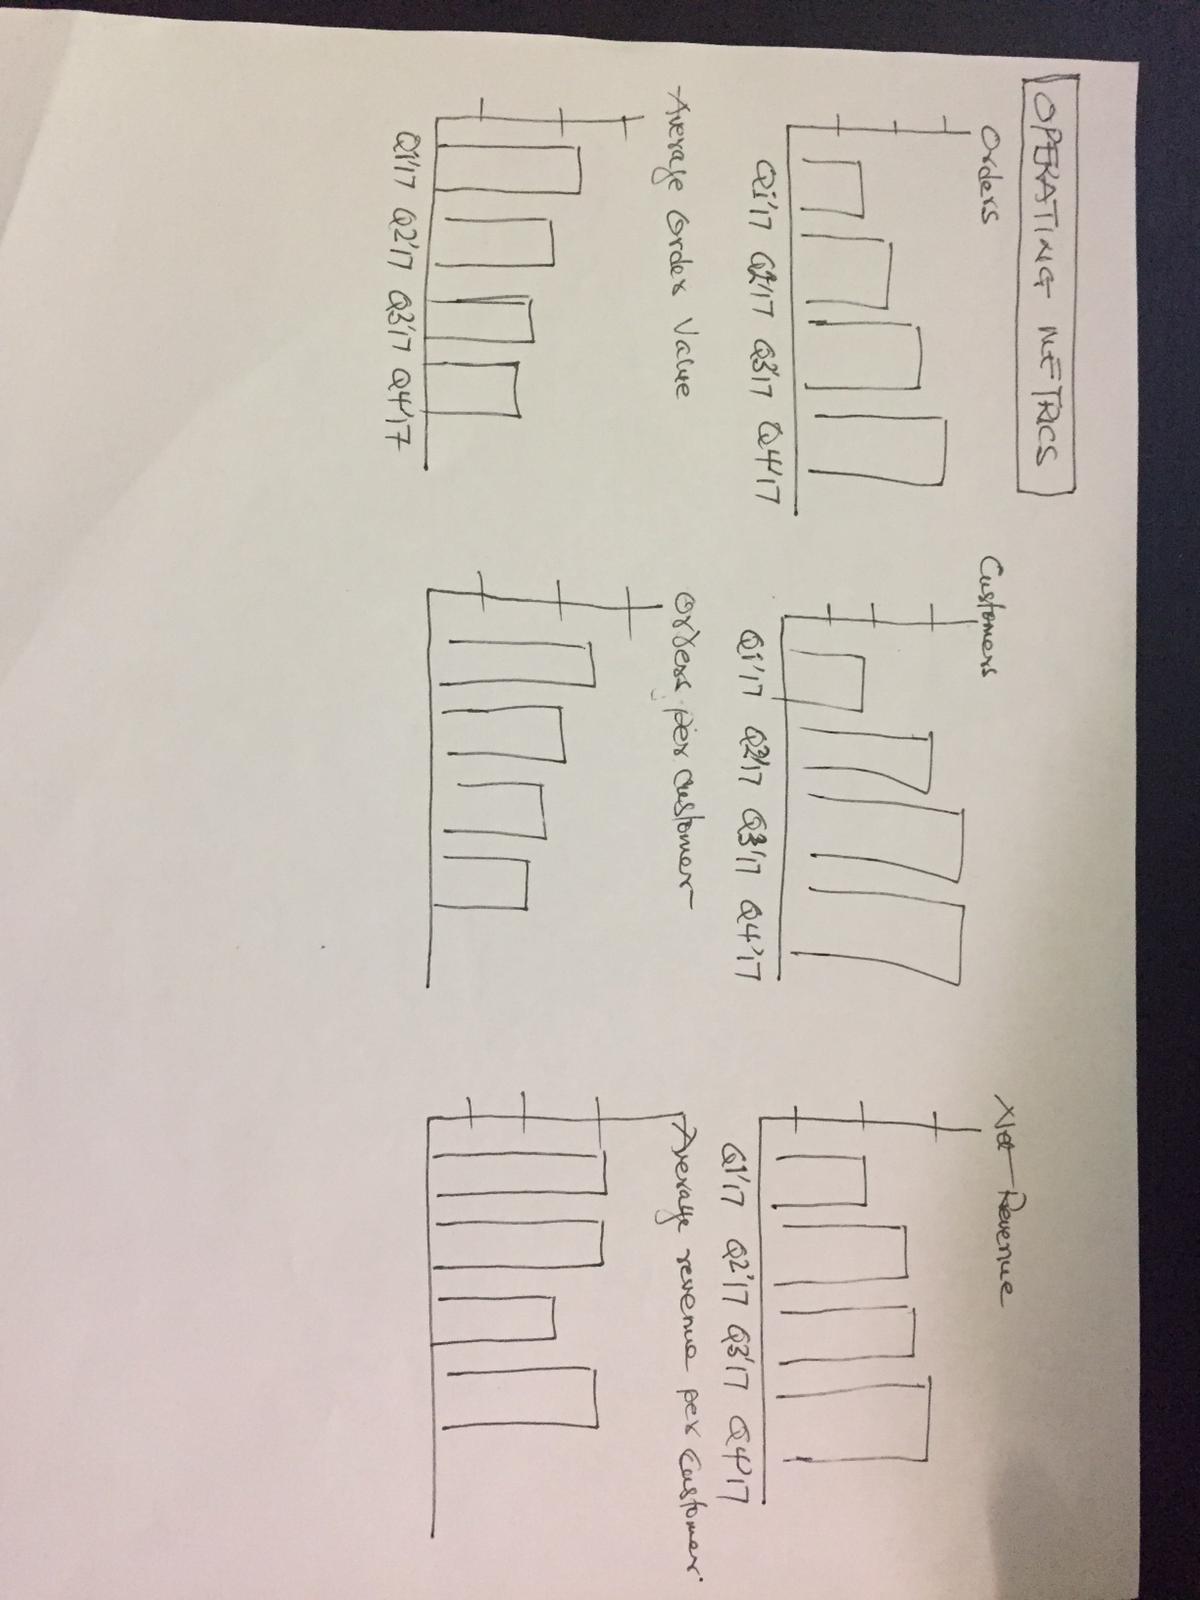 OPERATING METRICS
Orders
Q1'17 Q2'17 Q3'17 Q4'17
Customers
Q1'17 Q2'17 Q3'17 Q4'17
Net Revenue
Q1'17 Q2'17 Q3'17 Q4'17
Average Order Value
Q1'17 Q2'17 Q3'17 Q4'17
Orders per customer
Average revenue per customer